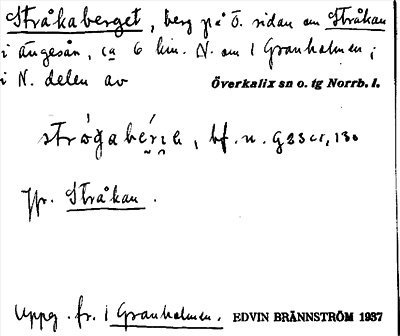 Stråkaberget, berg på ö. sidan om Stråkan
i ängesån, ca 6 km. N. om 1 Granholmen;
i N. delen av Överkalix sn o. tg Norrb. l.
bf. n.
Jfr. Stråkan.
Uppg. fr. 1 Granholmen. EDVIN BRÄNNSTRÖM 1937